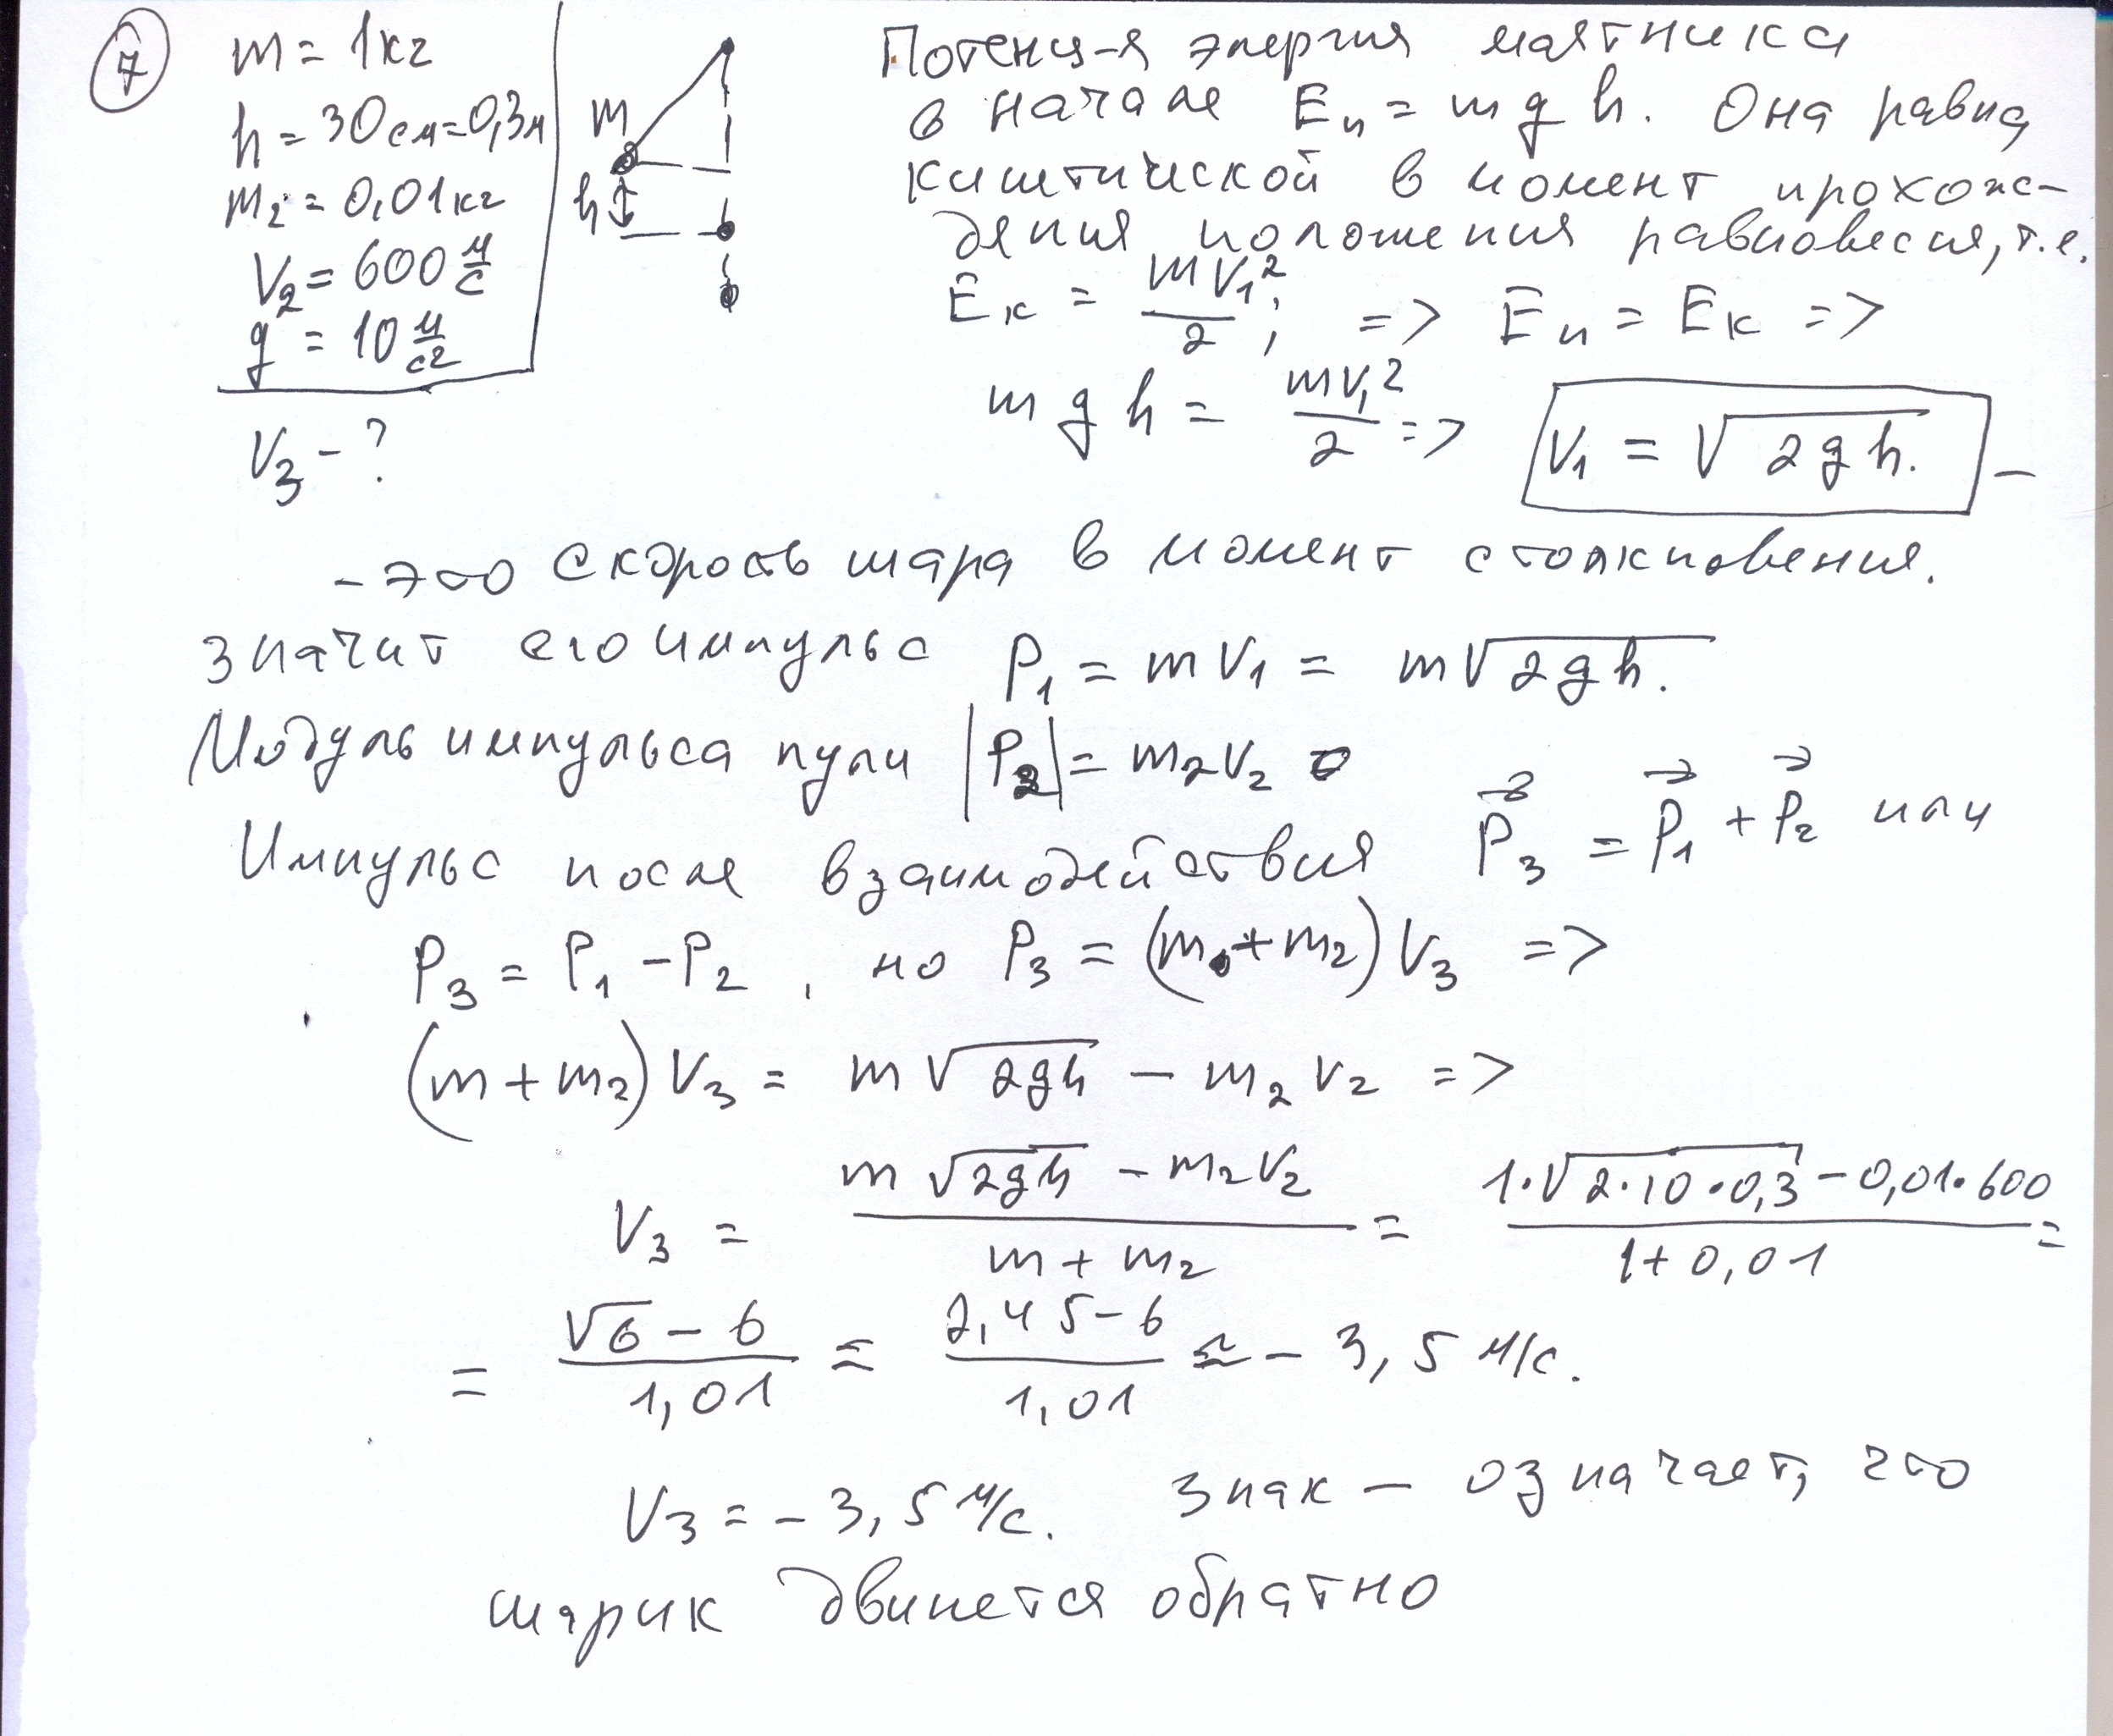 7
m = 1кг
h = 30см=0,3м
m₂ = 0,01кг
V₂ = 600 м/с
g = 10 м/с²
V₃ - ?
m
h
Потенц-я энергия маятника
в начале Eп = mgh. Она равна
кинетической в момент прохож-
дения положения равновесия, т.е.
Eк = mV₁²/2; => Eп = Eк =>
mgh = mV₁²/2 => V₁ = √2gh. -
- это скорость шара в момент столкновения.
значит его импульс P₁ = mV₁ = m√2gh.
Модуль импульса пули |P₂| = m₂V₂
Импульс после взаимодействия P⃗₃ = P⃗₁ + P⃗₂ или
P₃ = P₁ - P₂, но P₃ = (m + m₂)V₃ =>
(m + m₂)V₃ = m√2gh - m₂V₂ =>
V₃ = (m√2gh - m₂V₂)/(m + m₂) = (1·√2·10·0,3 - 0,01·600)/(1+0,01) =
= (√6 - 6)/1,01 = (2,45-6)/1,01 ≈ - 3,5 м/с.
V₃ = - 3,5 м/с. Знак - означает, что
шарик двинется обратно